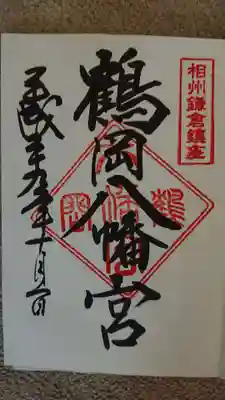 相州鎌倉鎮座
鶴岡八幡宮
平成二十九年十月一日